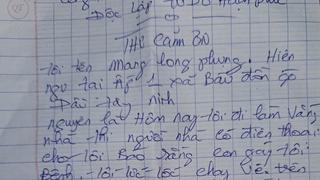 Độc Lập Tự Do Hạnh phúc
THƯ Cảm ƠN
tôi tên mang long phụng. Hiện
ngụ tại Ấp 1 xã Bàu đồn
Dầu Tây ninh
nguyên là Hôm nay tôi đi làm Vắng
nhà thì người nhà có điện thoại
cho tôi Bảo rằng con gái tôi
Bệnh. tôi tức tốc chạy về trên